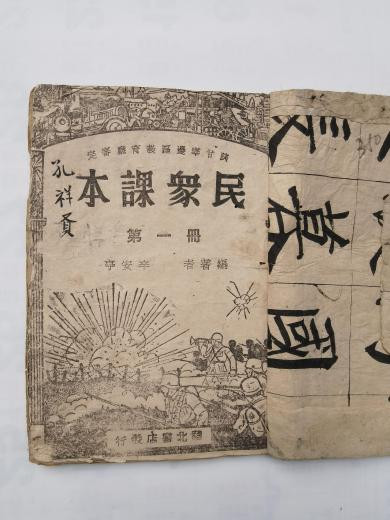 陝甘寧邊區教育廳審定
民衆課本
第一冊
編著者 辛安亭
北書店發行
孔祥
國